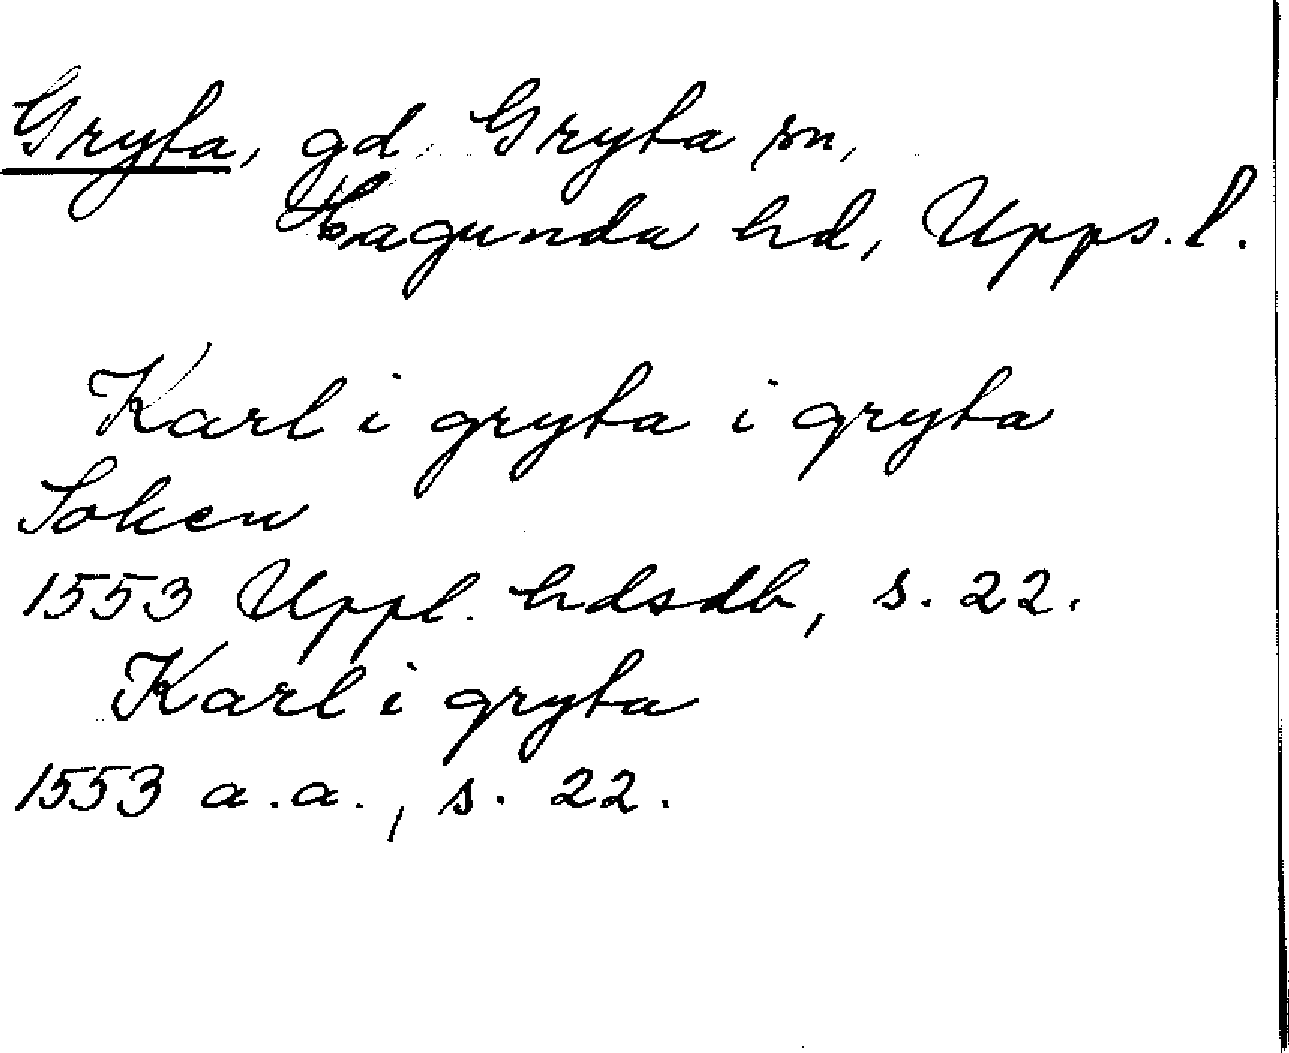 Gryta, gd, Gryta sn,
Hagunda hd, Upps. l.
Karl i gryta i gryta
Soken
1553 Uppl. hdsdb, s. 22.
Karl i gryta
1553 a.a., s. 22.